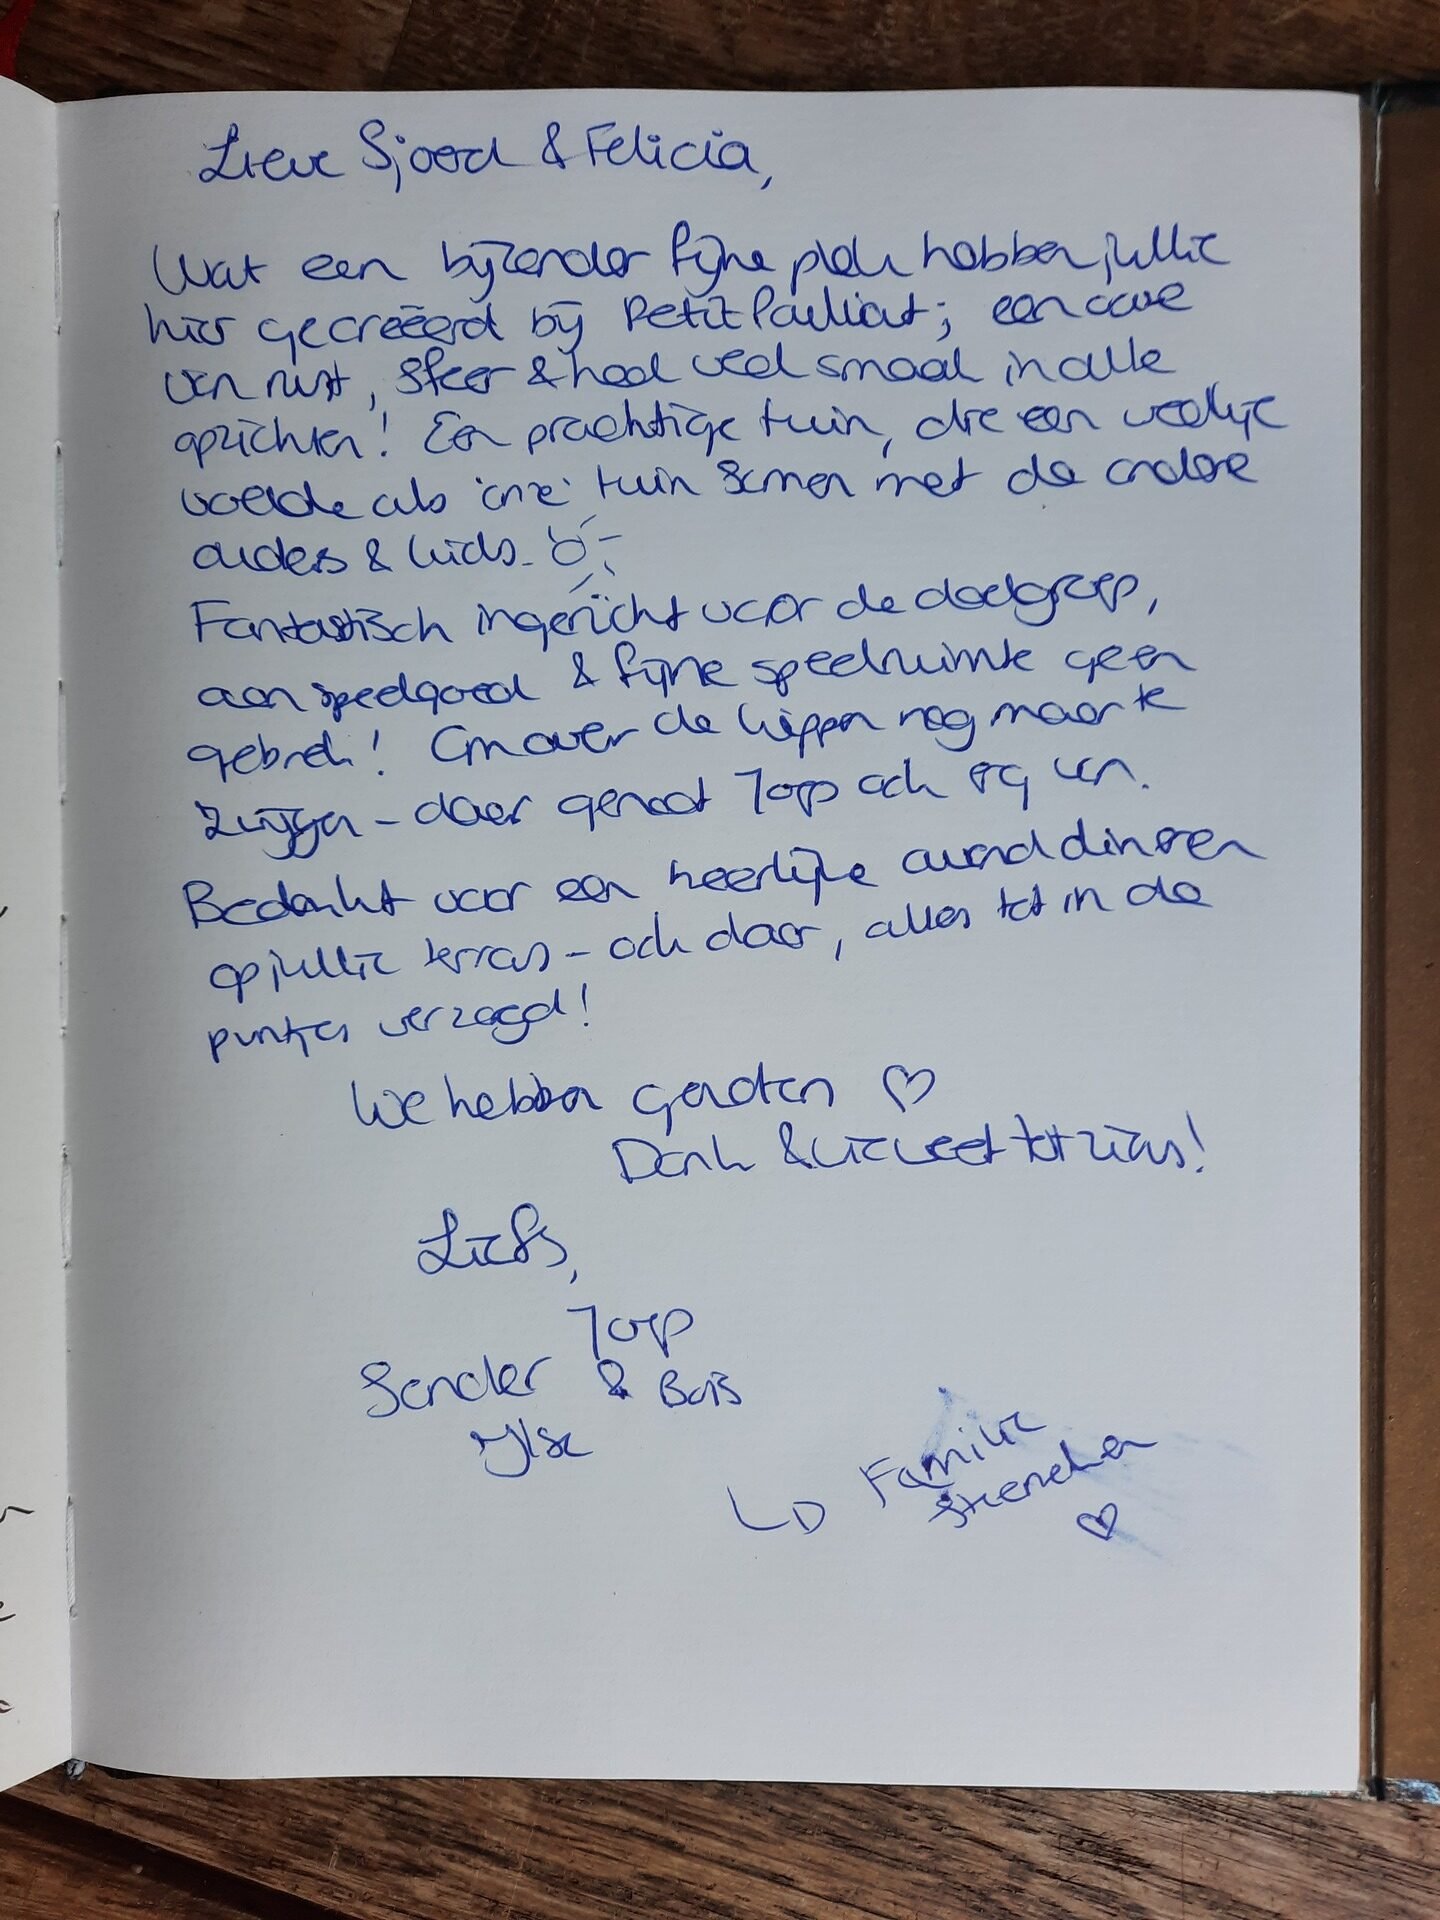 Lieve Sjoerd & Felicia,
Wat een bijzonder fijne plek hebben jullie
hier gecreëerd bij Petit Pauliat; een oase
van rust, sfeer & heel veel smaak in alle
opzichten! Een prachtige tuin, die een weekje
voelde als 'onze' tuin samen met de andere
ouders & kids.
Fantastisch ingericht voor de doelgroep,
aan speelgoed & fijne speelruimte geen
gebrek! Om over de kippen nog maar te
zwijgen - daar genoot Jop ook erg van.
Bedankt voor een heerlijke avond dineren
op jullie terras - ook daar, alles tot in de
puntjes verzorgd!
We hebben genoten ♡
Dank & wie weet tot ziens!
Liefs,
Jop
Sander & Bois
Ilse
Familie
♡